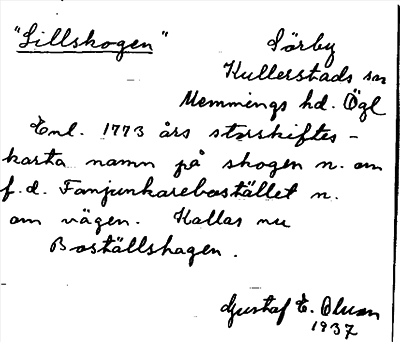 "Lillskogen" Sörby
Kullerstads sn
Memmings hd. Ögl
Enl. 1773 års storskiftes-
karta namn på skogen n. om
f.d. Fanjunkarebostället n.
om vägen. Kallas nu
Boställshagen.
Gustaf E. Olsson
1937